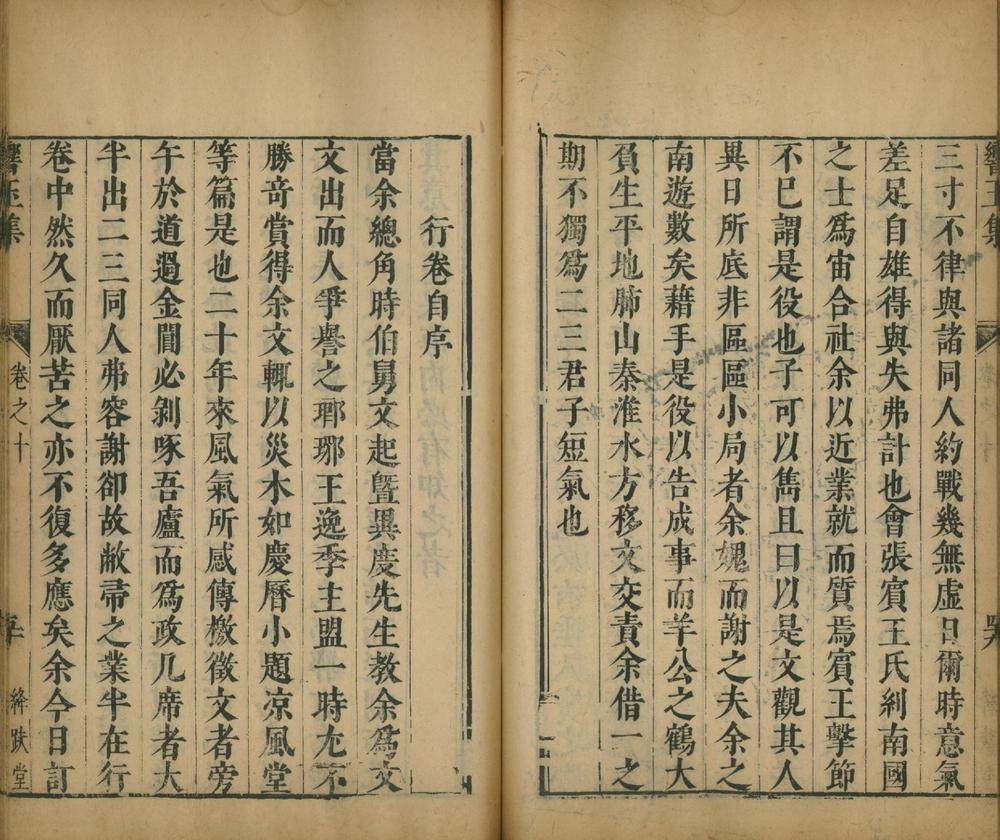 響玉集
三寸不律與諸同人約戰幾無虛日爾時意氣
差足自雄得與失弗計也會張賓王氏糾南國
之士爲宙合社余以近業就而質焉賓王擊節
不已謂是役也子可以雋且曰以是文觀其人
異日所底非區區小局者余媿而謝之夫余之
南遊數矣藉手是役以告成事而羊公之鶴大
負生平地肺山秦淮水方移文交責余借一之
期不獨爲二三君子短氣也
行卷自序
當余總角時伯舅文起暨異度先生教余爲文
文出而人爭譽之瑘琊王逸季主盟一時尤不
勝奇賞得余文輒以災木如慶曆小題凉風堂
等篇是也二十年來風氣所感傳檄徵文者旁
午於道過金閶必剝啄吾廬而爲政几席者大
半出二三同人弗容謝卻故敝帚之業半在行
卷中然久而厭苦之亦不復多應矣余今日訂
響玉集
卷之十
絳趺堂